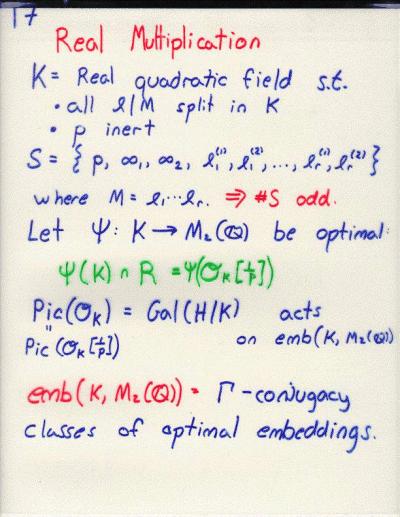 17
Real Multiplication
K = Real quadratic field s.t.
• all l|M split in K
• p inert
S = { p, ∞₁, ∞₂, l₁⁽¹⁾, l₁⁽²⁾, ..., lᵣ⁽¹⁾, lᵣ⁽²⁾ }
where M = l₁...lᵣ. ⇒ #S odd.
Let Ψ: K → M₂(ℚ) be optimal:
Ψ(K) ∩ R = Ψ(O_K[1/p])
Pic(O_K) = Gal(H/K) acts
"
Pic(O_K[1/p]) on emb(K, M₂(ℚ))
emb(K, M₂(ℚ)) = Γ-conjugacy
classes of optimal embeddings.